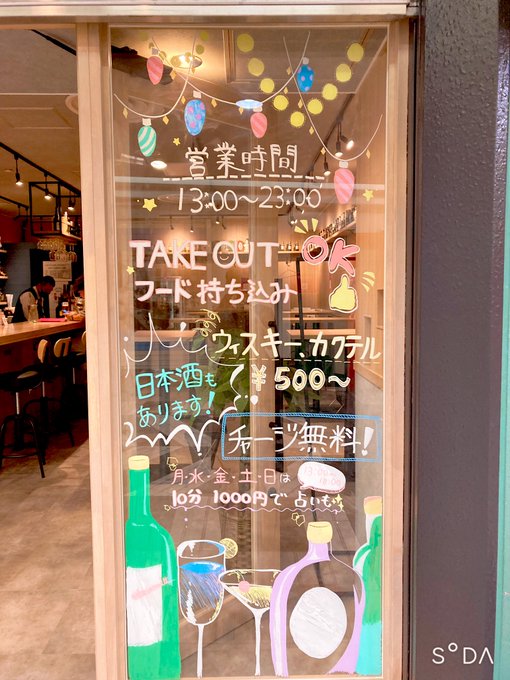 営業時間
13:00〜23:00
TAKE OUT OK
フード持ち込み
ウィスキー、カクテル
¥500〜
日本酒も
あります!
チャージ無料!
月・水・金・土・日は
10分 1000円で占いも
SODA